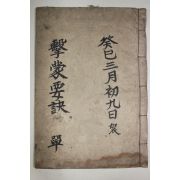 癸巳三月初九日製
擊蒙要訣 單